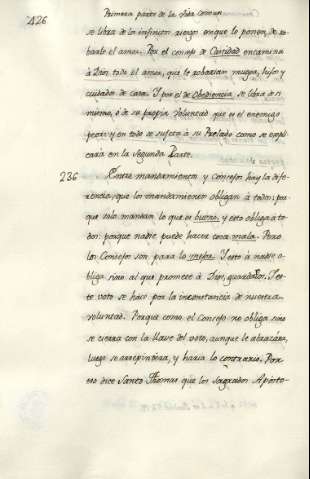 426
Primera parte de la vida comun
se libra de los infinitos riesgos en que lo ponen, de ro-
barle el amor. Por el consejo de Castidad encamina
à Dios todo el amor, que le robarian muger, hijos y
cuidados de casa. Y por el de Obediencia, se libra de si
mismo, ó de su propia Voluntad que es el enemigo
peor: y en todo se sujeta à su Prelado como se expli-
caria en la Segunda Parte.
236 Entre mandamientos y Consejos hay la dife-
rencia, que los mandamientos obligan à todos; por
que solo mandan lo que es bueno, y esto obliga à to-
dos: porque nadie puede hacer cosa mala. Pero
los Consejos son para lo mejor. Y esto à nadie o-
bliga sino al que promete à Dios, guardarlos. Y es-
te voto se hace por la inconstancia de nuestra
voluntad. Porque como el Consejo no obliga sino
se cierra con la llave del voto, aunque le abrazára,
luego se arrepintiera, y haria lo contrario. Por
eso dice Santo Thomas que los Sagrados Aposto-